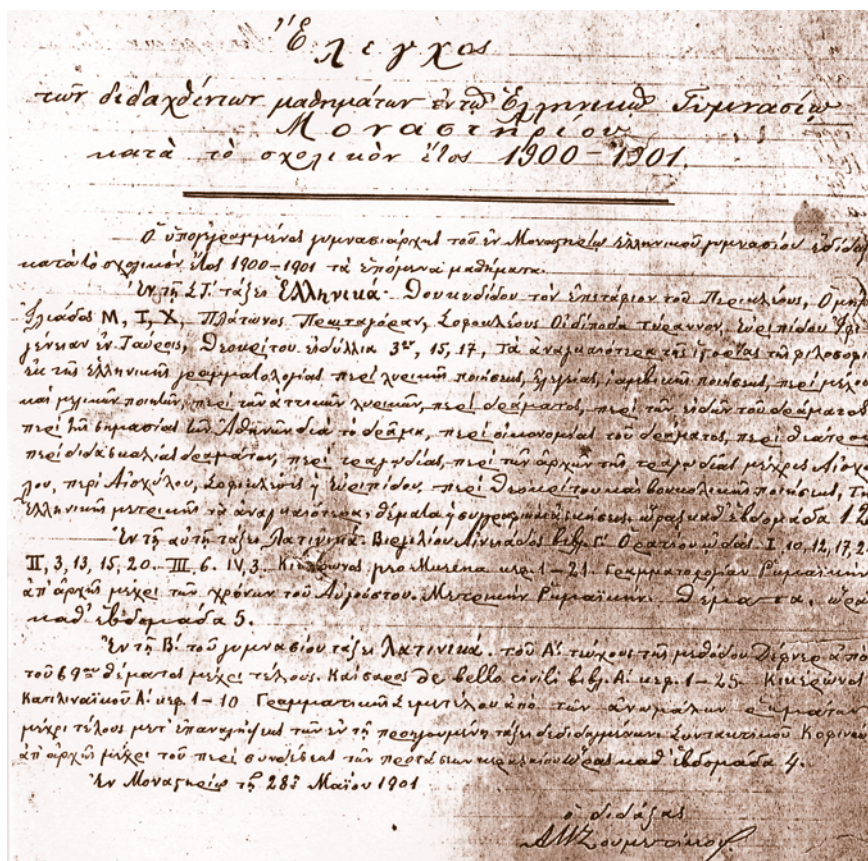 Ἔλεγχος
τῶν διδαχθέντων μαθημάτων ἐν τῷ Ἑλληνικῷ Γυμνασίῳ
Μοναστηρίου
κατὰ τὸ σχολικὸν ἔτος 1900-1901.
Ὁ ὑπογεγραμμένος γυμνασιάρχης τοῦ ἐν Μοναστηρίῳ ἑλληνικοῦ γυμνασίου ἐδίδαξ
κατὰ τὸ σχολικὸν ἔτος 1900-1901 τὰ ἑπόμενα μαθήματα.
Ἐν τῇ ΣΤ΄. τάξει Ἑλληνικά· Θουκυδίδου τὸν ἐπιτάφιον τοῦ Περικλέους, Ὁμήρ
Ἰλιάδος Μ, Ι, Χ, Πλάτωνος Πρωταγόραν, Σοφοκλέους Οἰδίποδα τύραννον, Εὐριπίδου Ἰφι
γένειαν ἐν Ταύροις, Θεοκρίτου εἰδύλλια 3ον, 15, 17, τὰ ἀναγκαιότερα τῆς ἱστορίας τῆς φιλοσοφ
ἐκ τῆς ἑλληνικῆς γραμματολογίας περὶ λυρικῆς ποιήσεως, ἐλεγείας, ἰαμβικῆς ποιήσεως, περὶ μέλου
καὶ μελικῶν ποιητῶν, περὶ τῶν ἀττικῶν λυρικῶν, περὶ δράματος, περὶ τῶν εἰδῶν τοῦ δράματος
περὶ τῆς σημασίας τῶν Ἀθηνῶν διὰ τὸ δρᾶμα, περὶ οἰκονομίας τοῦ δράματος, περὶ θεάτρου
περὶ διδασκαλίας δραμάτων, περὶ τραγῳδίας, περὶ τῶν ἀρχῶν τῆς τραγῳδίας μέχρις Αἰσχύ
λου, περὶ Αἰσχύλου, Σοφοκλέους ἢ Εὐριπίδου, περὶ Θεοκρίτου καὶ βουκολικῆς ποιήσεως, τῆ
Ἑλληνικῆς μετρικῆς τὰ ἀναγκαιότερα, θέματα ἢ συγγραφικὰς ἀσκήσεις, ὥρας καθ' ἑβδομάδα 12
Ἐν τῇ αὐτῇ τάξει Λατινικά· Βιργιλίου Αἰνειάδος βιβ. Γ΄. Ὁρατίου ᾠδὰς Ι, 10, 12, 17, 2
ΙΙ, 3, 13, 15, 20. ΙΙΙ, 6. IV, 3. Κικέρωνος pro Murena κεφ. 1-21. Γραμματολογίαν Ῥωμαϊκὴν
ἀπ' ἀρχῆς μέχρι τῶν χρόνων τοῦ Αὐγούστου. Μετρικὴν Ῥωμαϊκήν. Θέματα, ὥρα
καθ' ἑβδομάδα 5.
Ἐν τῇ Β΄. τοῦ γυμνασίου τάξει Λατινικά· τοῦ Α΄. τεύχους τῆς μεθόδου Δέφνερ ἀπὸ
τοῦ 69ου θέματος μέχρι τέλους. Καίσαρος de bello civili βιβλ. Α΄. κεφ. 1-25. Κικέρωνος
Κατιλιναϊκοῦ Α΄. κεφ. 1-10 Γραμματικῆς Σεμιτέλου ἀπὸ τῶν ἀνωμάλων ῥημάτων
μέχρι τέλους μετ' ἐπαναλήψεως τῶν ἐν τῇ προηγουμένῃ τάξει δεδιδαγμένων. Συντακτικοῦ Κοφινιώ
ἀπ' ἀρχῆς μέχρι τοῦ περὶ συνδέσεως τῶν προτάσεων κεφαλαίου ὥρας καθ' ἑβδομάδα 4.
Ἐν Μοναστηρίῳ τῇ 28ῃ Μαΐου 1901
ὁ διδάξας